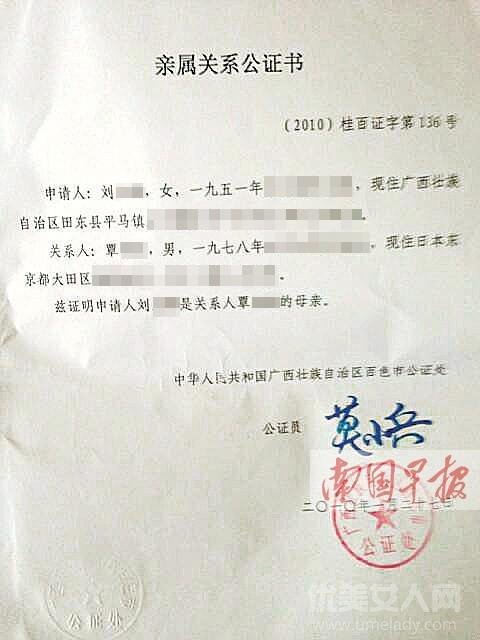 亲属关系公证书
（2010）桂百证字第136号
申请人：刘，女，一九五一年，现住广西壮族
自治区田东县平马镇。
关系人：覃，男，一九七八年，现住日本东
京都大田区。
兹证明申请人刘是关系人覃的母亲。
中华人民共和国广西壮族自治区百色市公证处
公证员
南国早报
二〇一〇年月二十七日
公证处
公证处
优美女人网
www.umelady.com